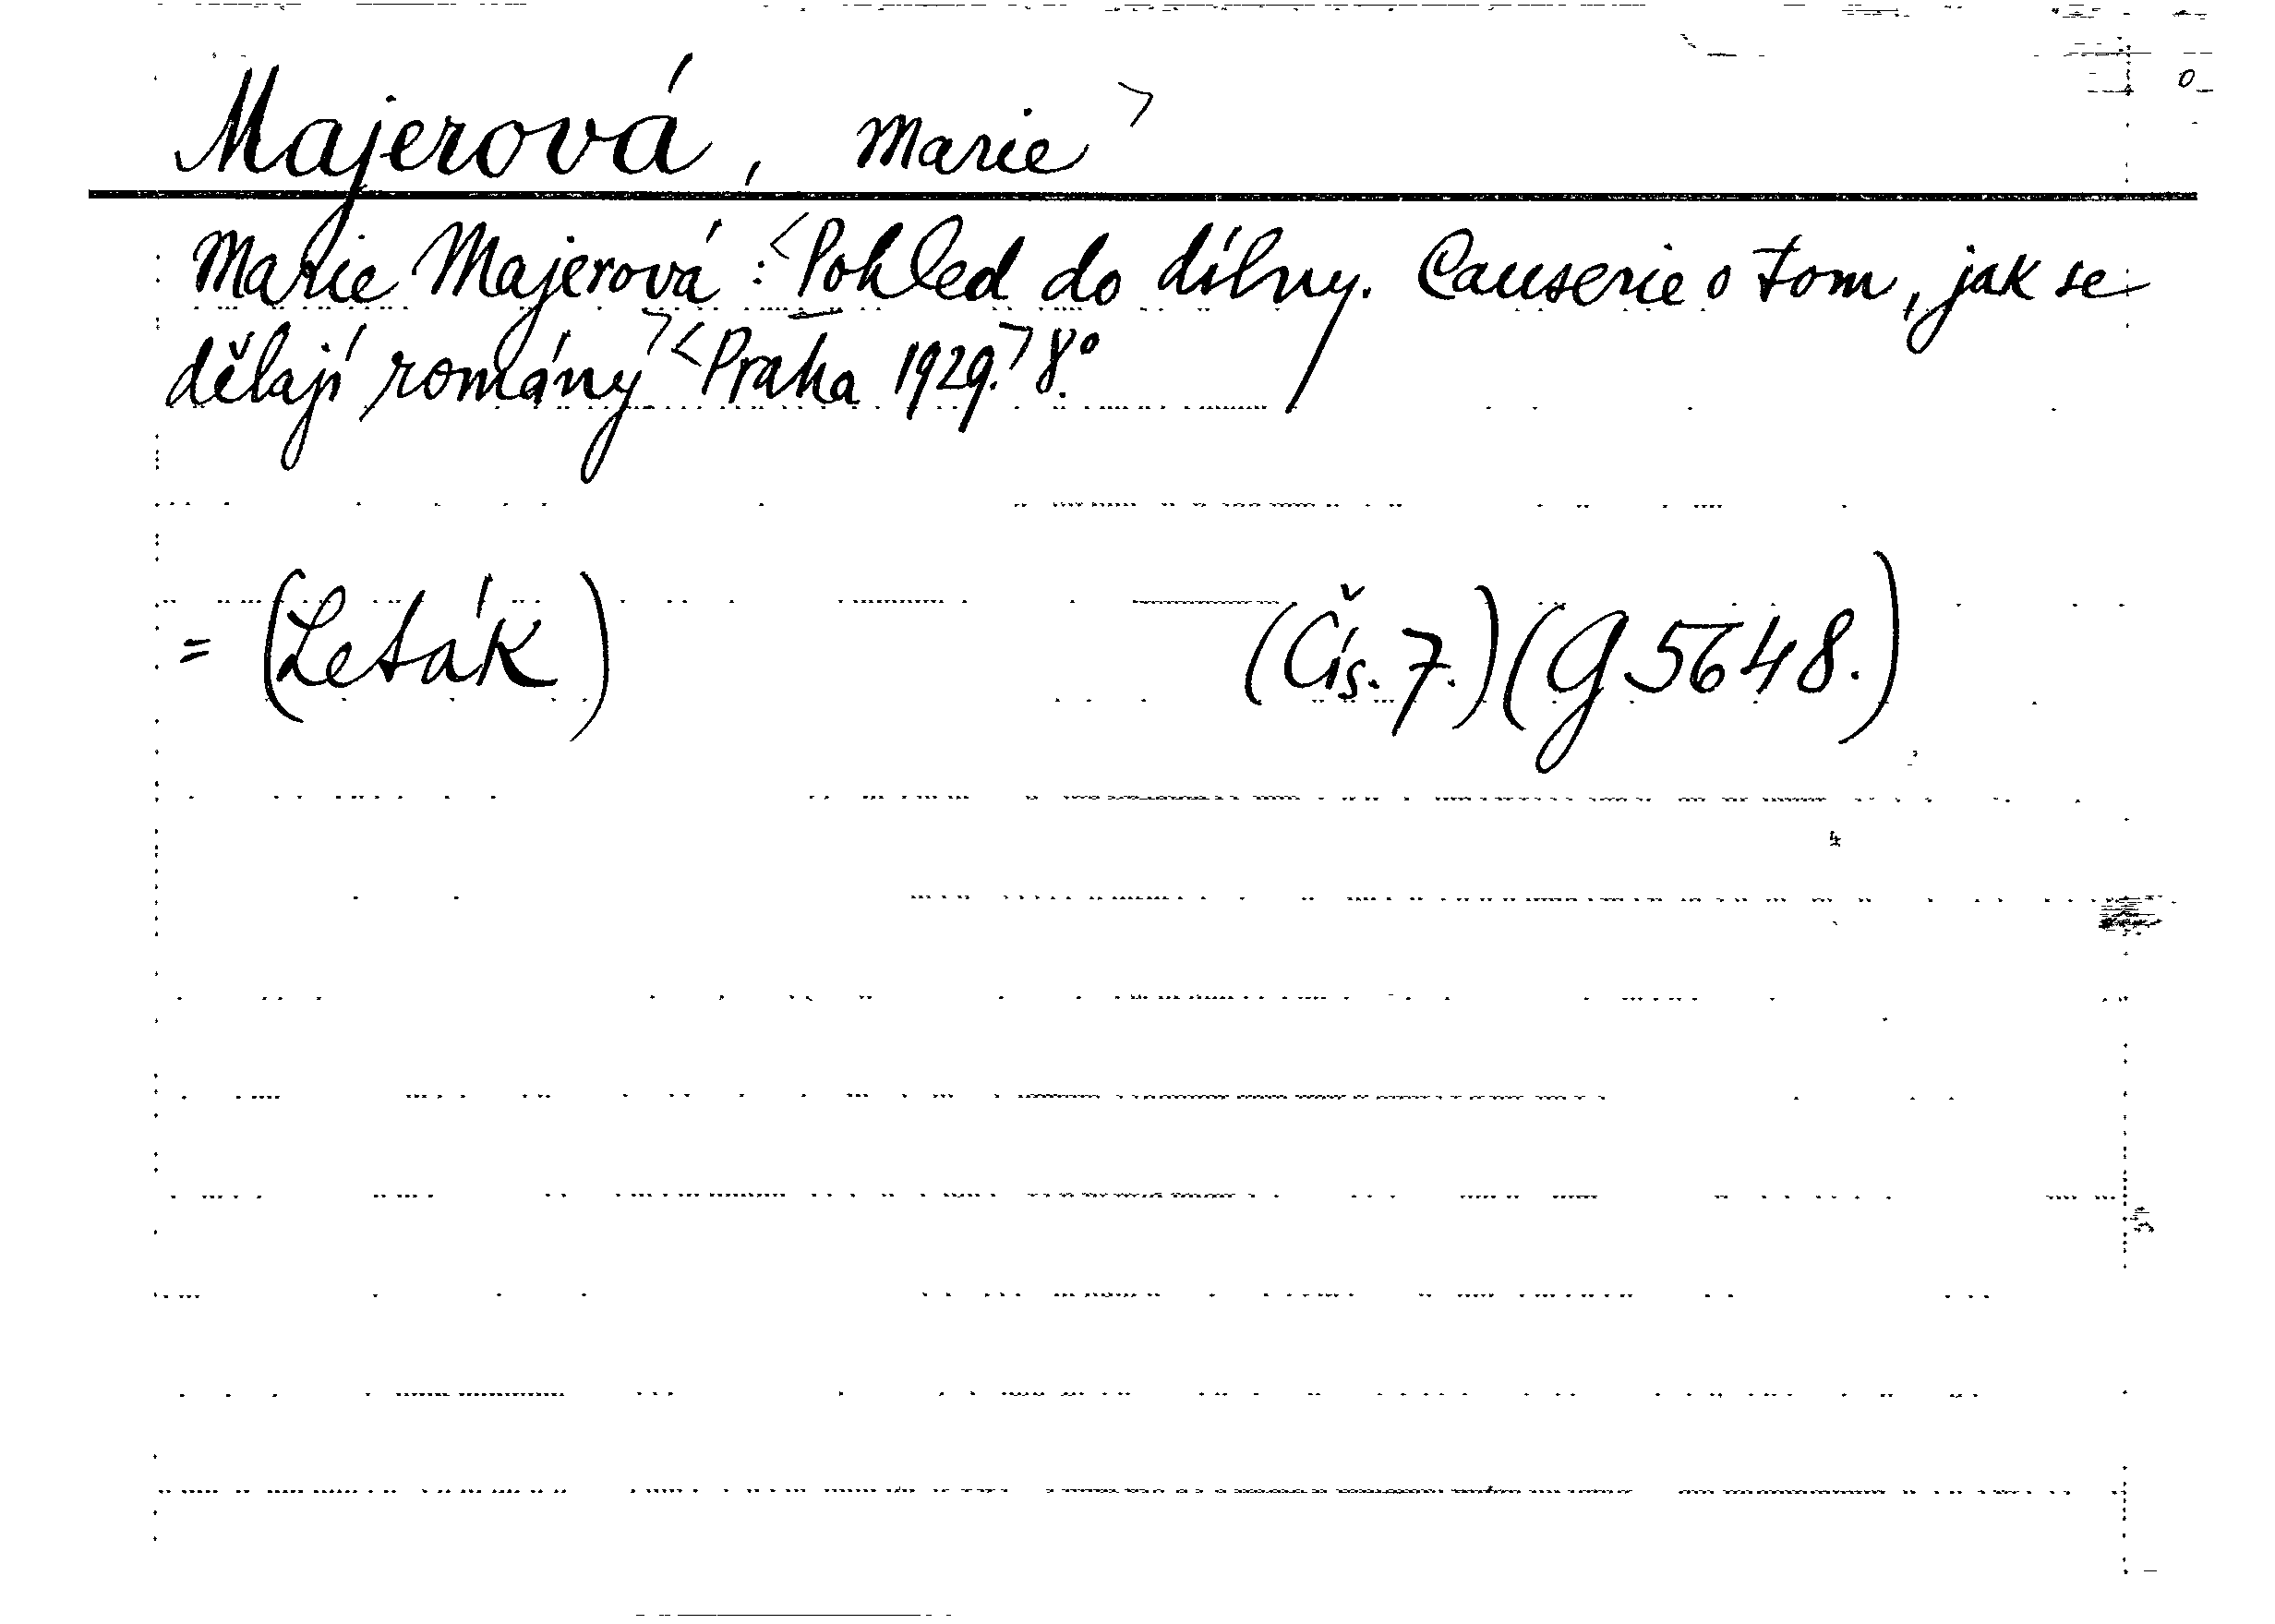 Majerová, Marie>
Marie Majerová: <Pohled do dílny. Causerie o tom, jak se
dělají romány> <Praha 1929.> 8.°
= (Leták) (Čís. 7.) (G 5648.)